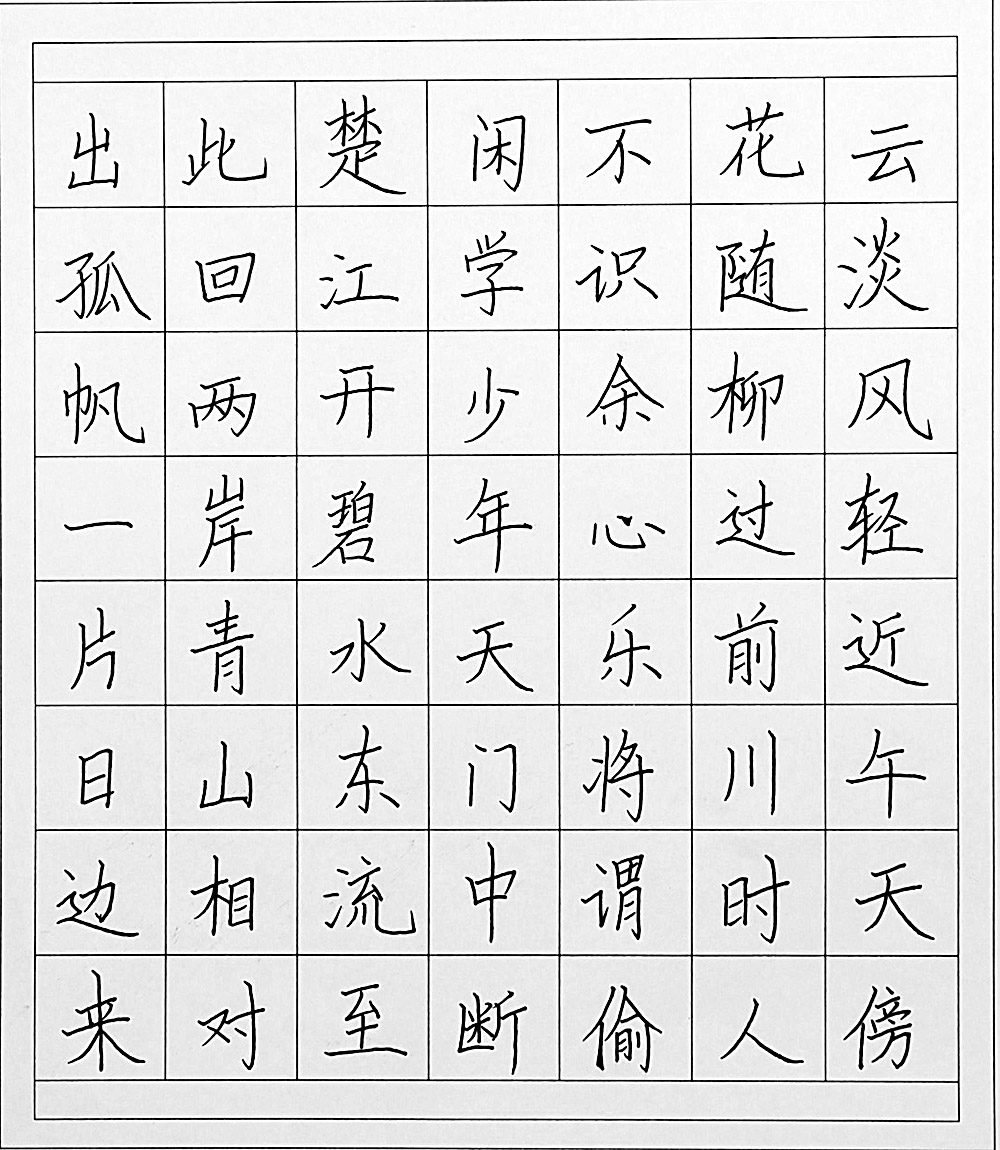 云淡风轻近午天傍
花随柳过前川时人
不识余心乐将谓偷
闲学少年天门中断
楚江开碧水东流至
此回两岸青山相对
出孤帆一片日边来